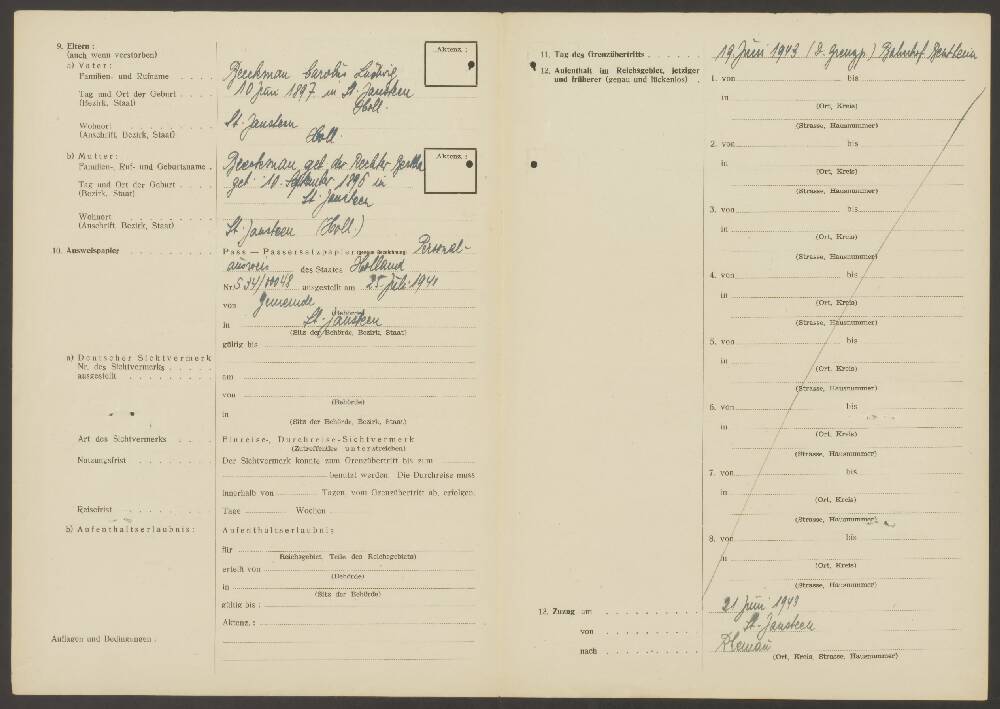 9. Eltern :
(auch wenn verstorben)
a) Vater :
Aktenz. :
Familien- und Rufname . Beeckman Carolis Ludwig
Tag und Ort der Geburt . . . . 10 Juni 1897 in St. Jansteen
(Bezirk, Staat) Holl.
Wohnort . . . . . . . . St. Jansteen
(Anschrift, Bezirk, Staat) Holl.
b) Mutter :
Aktenz. :
Familien-, Ruf- und Geburtsname . Beeckman geb. de
Tag und Ort der Geburt . . . . geb. 10. September 1896 in
(Bezirk, Staat) St. Jansteen
Wohnort . . . . . . . .
(Anschrift, Bezirk, Staat) St. Jansteen (Holl.)
10. Ausweispapier . . . . . . . Pass — Passersatzpapier (genaue Bezeichnung) Personal-
ausweis des Staates Holland
Nr. S 34/ ausgestellt am 25 Juli 1941
von Gemeinde
(Behörde)
in St. Jansteen
(Sitz der Behörde, Bezirk, Staat)
gültig bis
a) Deutscher Sichtvermerk
Nr. des Sichtvermerks . . . . .
ausgestellt . . . . . . . am
von
(Behörde)
in
(Sitz der Behörde, Bezirk, Staat)
Art des Sichtvermerks . . . . Einreise-, Durchreise-Sichtvermerk
(Zutreffendes unterstreichen)
Nutzungsfrist . . . . . . . Der Sichtvermerk konnte zum Grenzübertritt bis zum
benutzt werden. Die Durchreise muss
innerhalb von Tagen, vom Grenzübertritt ab, erfolgen.
Reisefrist . . . . . . . . Tage Wochen
b) Aufenthaltserlaubnis : Aufenthaltserlaubnis
für
Reichsgebiet, Teile des Reichsgebiets)
erteilt von
(Behörde)
in
(Sitz der Behörde)
gültig bis :
Aktenz. :
Auflagen und Bedingungen :
11. Tag des Grenzübertritts . . . . . . 19. Juni 1943 (D. Grenzp.) Bahnhof Bentheim
12. Aufenthalt im Reichsgebiet, jetziger
und früherer (genau und lückenlos) .
1. von bis
in
(Ort, Kreis)
(Strasse, Hausnummer)
2. von bis
in
(Ort, Kreis)
(Strasse, Hausnummer)
3. von bis
in
(Ort, Kreis)
(Strasse, Hausnummer)
4. von bis
in
(Ort, Kreis)
(Strasse, Hausnummer)
5. von bis
in
(Ort, Kreis)
(Strasse, Hausnummer)
6. von bis
in
(Ort, Kreis)
(Strasse, Hausnummer)
7. von bis
in
(Ort, Kreis)
(Strasse, Hausnummer)
8. von bis
in
(Ort, Kreis)
(Strasse, Hausnummer)
13. Zuzug am . . . . . . . . 21 Juni 1943
von . . . . . . . . St. Jansteen
nach . . . . . . . .
(Ort, Kreis, Strasse, Hausnummer)